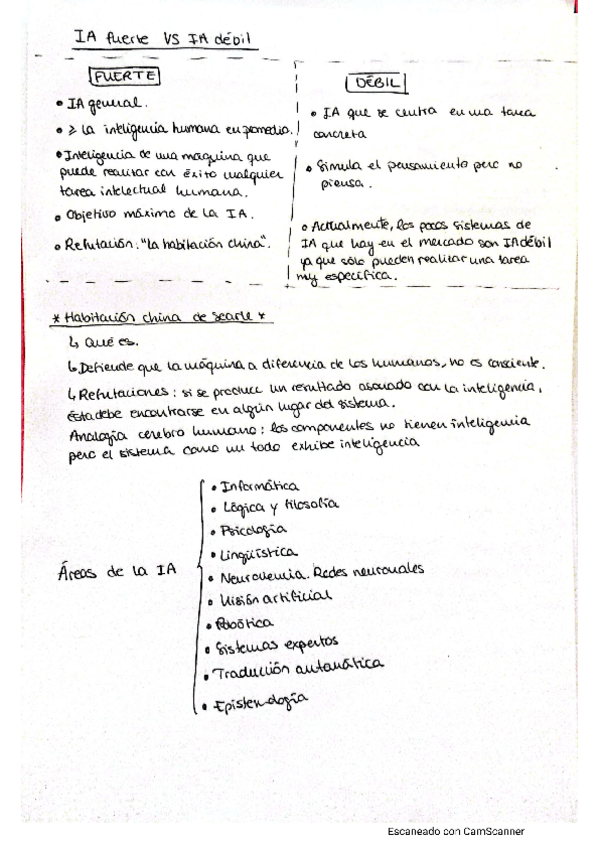 IA fuerte VS IA débil
FUERTE
• IA general.
• ≥ la inteligencia humana en promedio.
• Inteligencia de una máquina que
puede realizar con éxito cualquier
tarea intelectual humana.
• Objetivo máximo de la IA.
• Refutación: "la habitación china".
DÉBIL
• IA que se centra en una tarea
concreta
• Simula el pensamiento pero no
piensa.
• Actualmente, los pocos sistemas de
IA que hay en el mercado son IA débil
ya que sólo pueden realizar una tarea
muy específica.
* Habitación china de searle *
↳ Qué es.
↳ Defiende que la máquina a diferencia de los humanos, no es consciente.
↳ Refutaciones: si se produce un resultado asociado con la inteligencia,
ésta debe encontrarse en algún lugar del sistema.
Analogía cerebro humano: los componentes no tienen inteligencia
pero el sistema como un todo exhibe inteligencia
Áreas de la IA
• Informática
• Lógica y filosofía
• Psicología
• Lingüística
• Neurociencia. Redes neuronales
• Visión artificial
• Robótica
• Sistemas expertos
• Traducción automática
• Epistemología
Escaneado con CamScanner